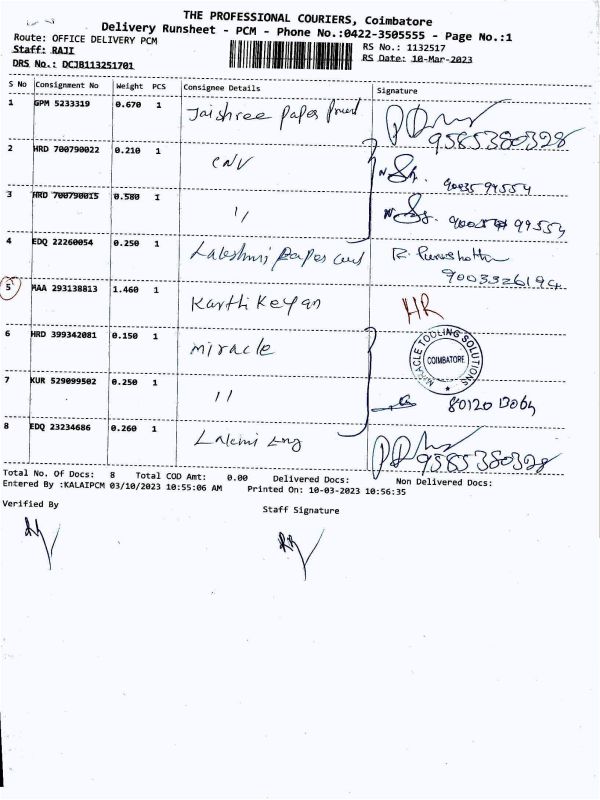 THE PROFESSIONAL COURIERS, Coimbatore
Delivery Runsheet - PCM - Phone No.:0422-3505555 - Page No.:1
Route: OFFICE DELIVERY PCM
RS No.: 1132517
Staff: RAJI
RS Date: 10-Mar-2023
DRS No.: DCJB113251701
S No Consignment No Weight PCS Consignee Details Signature
1 GPM 5233319 0.670 1 Jaishree Paper
9585380328
2 HRD 700790022 0.210 1 CNV
3 HRD 700790015 0.580 1 11
4 EDQ 22260054 0.250 1 Lakshmi Paper
5 MAA 293138813 1.460 1 Karthikeyan HR
6 HRD 399342081 0.150 1 miracle
MIRACLE TOOLING SOLUTIONS
COIMBATORE
7 KUR 529099502 0.250 1 11
80120 13064
8 EDQ 23234686 0.260 1
9585380328
Total No. Of Docs: 8 Total COD Amt: 0.00 Delivered Docs: Non Delivered Docs:
Entered By :KALAIPCM 03/10/2023 10:55:06 AM Printed On: 10-03-2023 10:56:35
Verified By Staff Signature